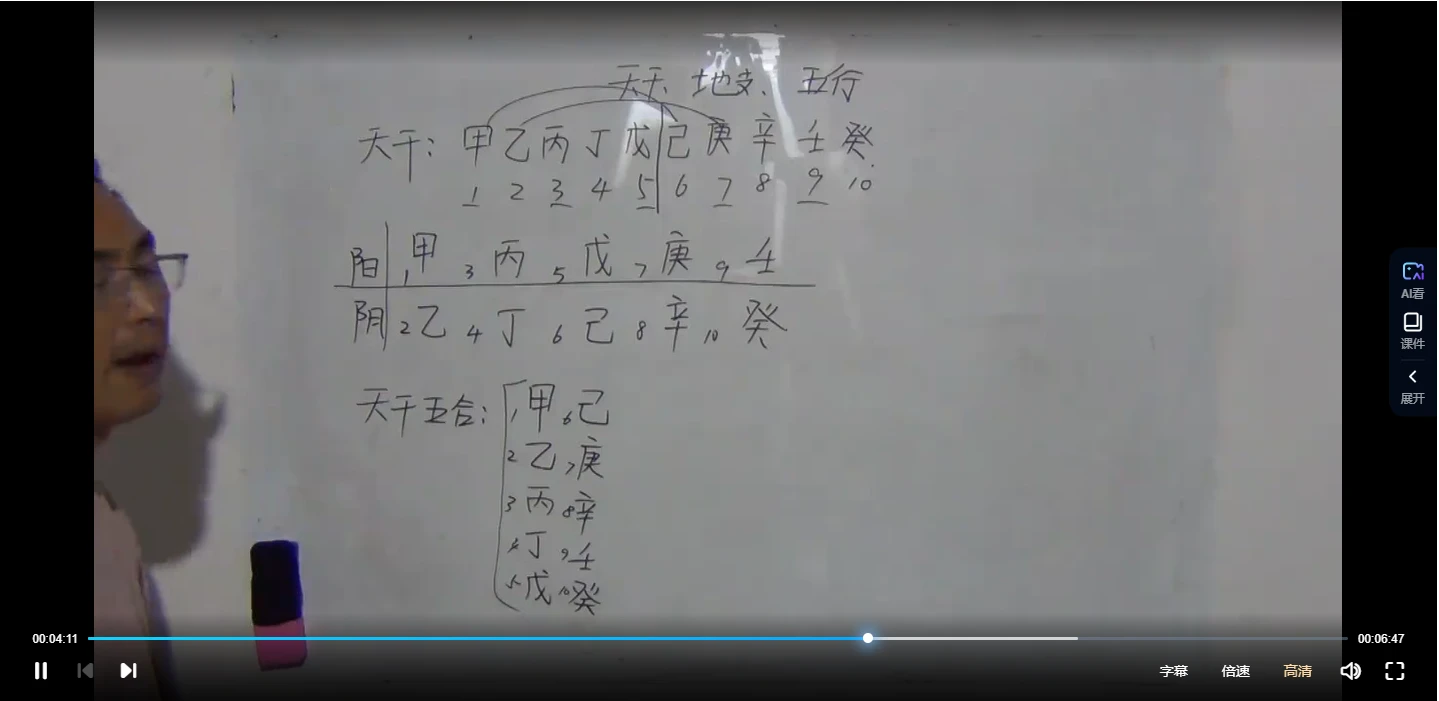 天干、地支、五行
天干：甲乙丙丁戊己庚辛壬癸
1 2 3 4 5 6 7 8 9 10
阳 1甲 3丙 5戊 7庚 9壬
阴 2乙 4丁 6己 8辛 10癸
天干五合：1甲6己
2乙7庚
3丙8辛
4丁9壬
5戊10癸
AI看
课件
展开
00:04:11
00:06:47
字幕 倍速 高清